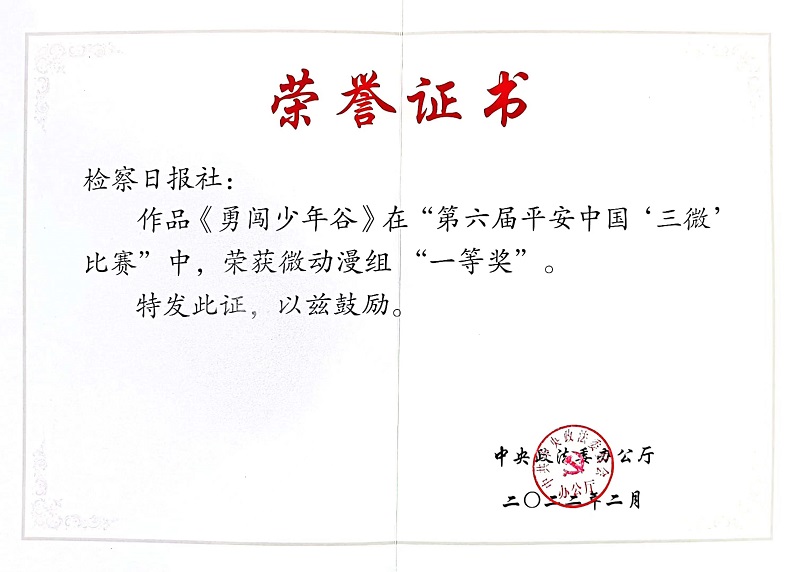 荣誉证书
检察日报社：
作品《勇闯少年谷》在“第六届平安中国‘三微’
比赛”中，荣获微动漫组“一等奖”。
特发此证，以兹鼓励。
中共中央政法委员会
办公厅
中央政法委办公厅
二〇二二年二月